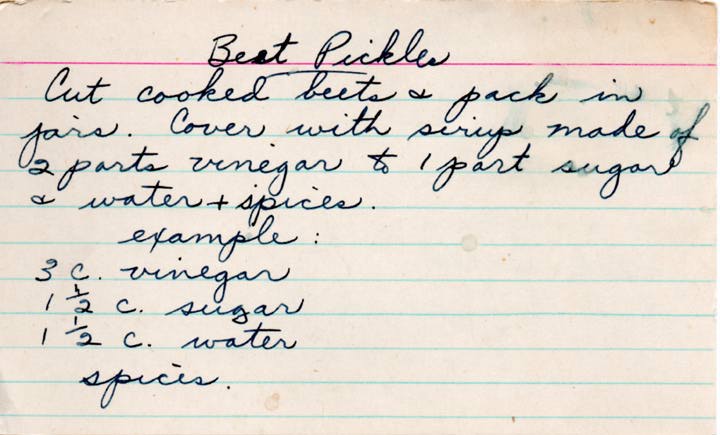 Beet Pickles
Cut cooked beets & pack in
jars. Cover with sirup made of
2 parts vinegar to 1 part sugar
& water + spices.
example:
3 c. vinegar
1 1/2 c. sugar
1 1/2 c. water
spices.